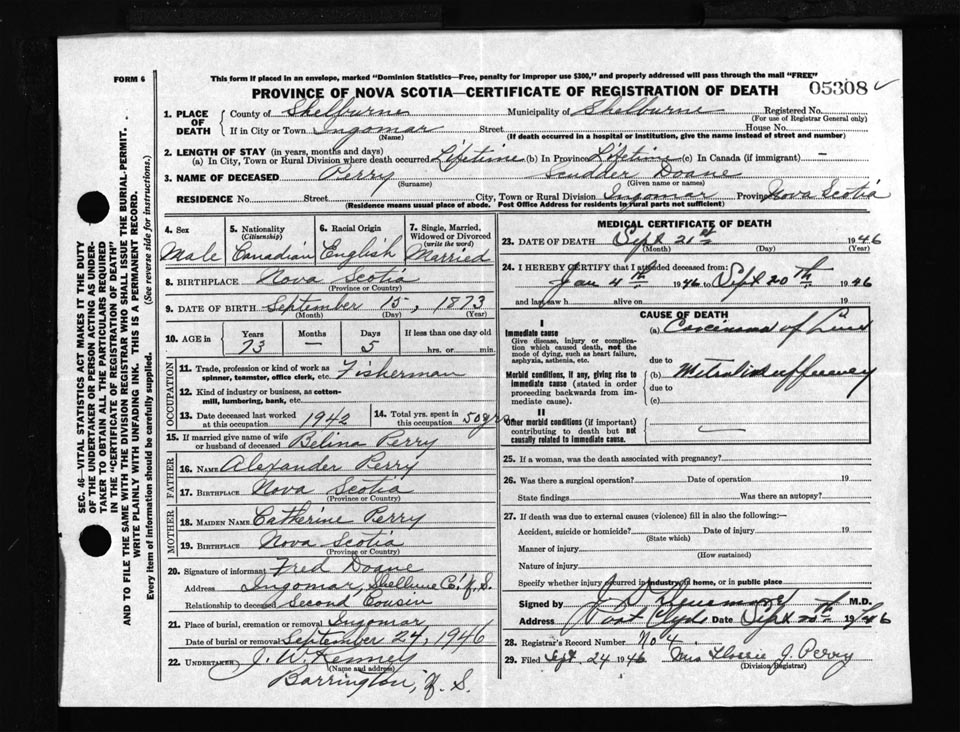 FORM 6
This form if placed in an envelope, marked "Dominion Statistics—Free, penalty for improper use $300," and properly addressed will pass through the mail "FREE"
PROVINCE OF NOVA SCOTIA—CERTIFICATE OF REGISTRATION OF DEATH
05308
1. PLACE OF DEATH County of Shelburne Municipality of Shelburne Registered No.
(For use of Registrar General only)
If in City or Town Ingomar Street House No.
(Name) (If death occurred in a hospital or institution, give the name instead of street and number)
2. LENGTH OF STAY (in years, months and days)
(a) In City, Town or Rural Division where death occurred Lifetime (b) In Province Lifetime (c) In Canada (if immigrant) —
3. NAME OF DECEASED Perry Scudder Doane
(Surname) (Given name or names)
RESIDENCE No. Street City, Town or Rural Division Ingomar Province Nova Scotia
(Residence means usual place of abode. Post Office Address for residents in rural parts not sufficient)
4. Sex Male
5. Nationality (Citizenship) Canadian
6. Racial Origin English
7. Single, Married, Widowed or Divorced (write the word) Married
8. BIRTHPLACE Nova Scotia
(Province or Country)
9. DATE OF BIRTH September 15, 1873
(Month) (Day) (Year)
10. AGE in Years Months Days If less than one day old
73 — 5 hrs. or min.
OCCUPATION
11. Trade, profession or kind of work as spinner, teamster, office clerk, etc. Fisherman
12. Kind of industry or business, as cotton-mill, lumbering, bank, etc.
13. Date deceased last worked at this occupation 1942
14. Total yrs. spent in this occupation 50 yrs
15. If married give name of wife or husband of deceased Belina Perry
FATHER
16. NAME Alexander Perry
17. BIRTHPLACE Nova Scotia
(Province or Country)
MOTHER
18. MAIDEN NAME Catherine Perry
19. BIRTHPLACE Nova Scotia
(Province or Country)
20. Signature of informant Fred Doane
Address Ingomar, Shelburne Co. N.S.
Relationship to deceased Second Cousin
21. Place of burial, cremation or removal Ingomar
Date of burial or removal September 24, 1946
22. UNDERTAKER J. W. Kenney
(Name and address)
Barrington, N.S.
MEDICAL CERTIFICATE OF DEATH
23. DATE OF DEATH Sept 21st 1946
(Month) (Day) (Year)
24. I HEREBY CERTIFY that I attended deceased from:
Jan 4th 1946 to Sept 20th 1946
and last saw h alive on 19
CAUSE OF DEATH
I
Immediate cause
Give disease, injury or complication which caused death, not the mode of dying, such as heart failure, asphyxia, asthenia, etc.
(a) Carcinoma of
due to
Morbid conditions, if any, giving rise to immediate cause (stated in order proceeding backwards from immediate cause).
(b) Mitral insufficiency
due to
(c)
II
Other morbid conditions (if important) contributing to death but not causally related to immediate cause.
25. If a woman, was the death associated with pregnancy?
26. Was there a surgical operation? Date of operation 19
State findings Was there an autopsy?
27. If death was due to external causes (violence) fill in also the following:—
Accident, suicide or homicide? Date of injury 19
(State which)
Manner of injury
(How sustained)
Nature of injury
Specify whether injury occurred in industry, at home, or in public place
Signed by M.D.
Address Port Clyde Date Sept 1946
28. Registrar's Record Number No 4
29. Filed Sept. 24 1946 Mrs Flossie J. Perry
(Division Registrar)
SEC. 46—VITAL STATISTICS ACT MAKES IT THE DUTY
OF THE UNDERTAKER OR PERSON ACTING AS UNDER-
TAKER TO OBTAIN ALL THE PARTICULARS REQUIRED
IN THE "CERTIFICATE OF REGISTRATION OF DEATH"
AND TO FILE THE SAME WITH THE DIVISION REGISTRAR WHO SHALL ISSUE THE BURIAL PERMIT.
WRITE PLAINLY WITH UNFADING INK. THIS IS A PERMANENT RECORD.
Every item of information should be carefully supplied. (See reverse side for instructions.)